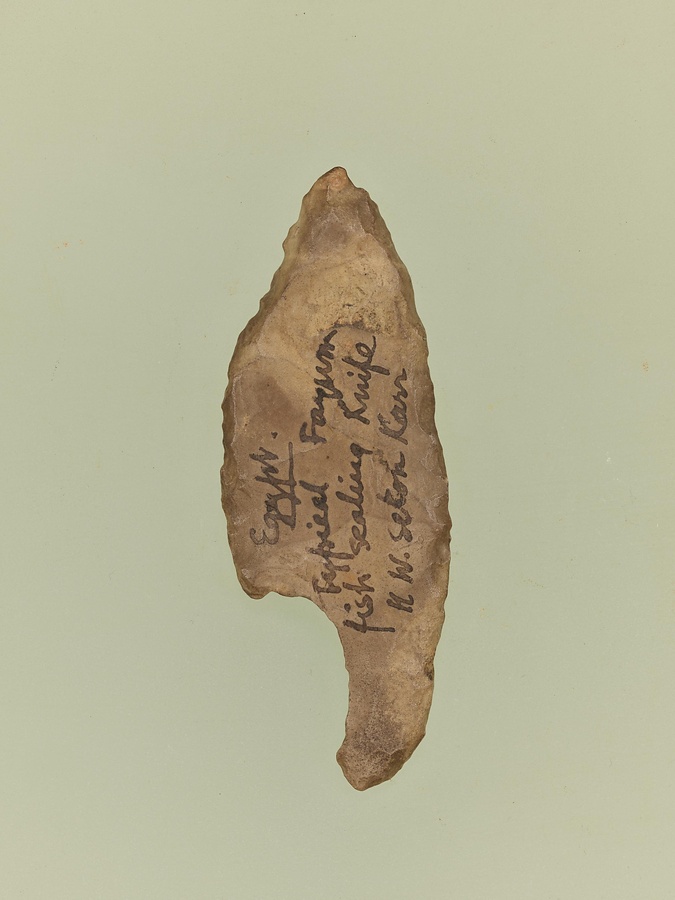 Egypt.
Typical Fayum
fish scaling Knife
H W. Seton Karr